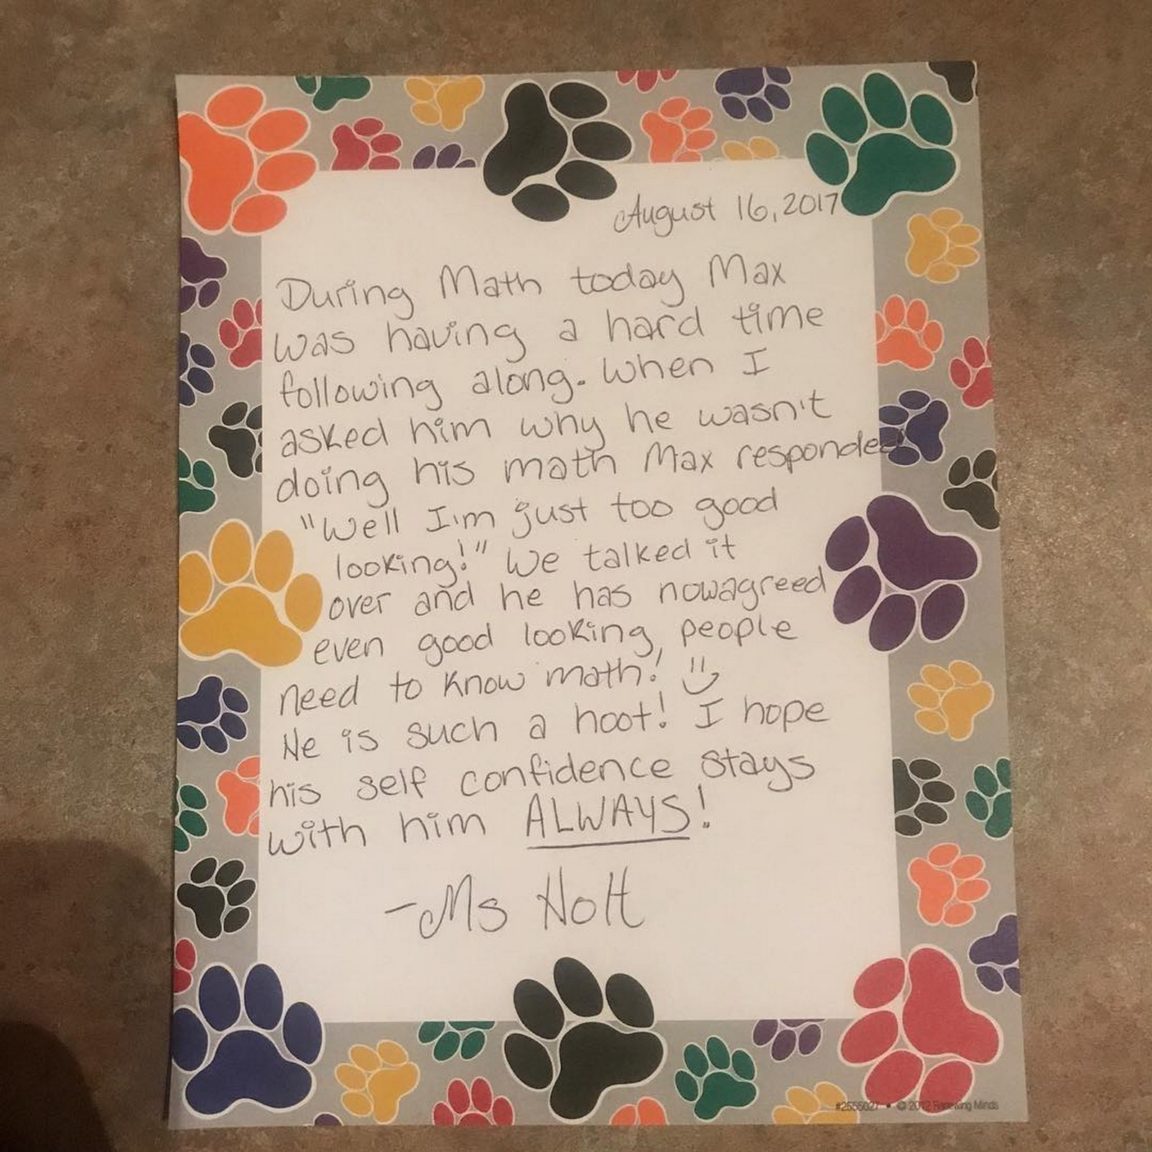 August 16, 2017
During Math today Max
was having a hard time
following along. When I
asked him why he wasn't
doing his math Max responded
"Well I'm just too good
looking!" We talked it
over and he has nowagreed
even good looking, people
need to know math!
He is such a hoot! I hope
his self confidence stays
with him ALWAYS!
-Ms Holt
© 2012 Raeking Minds